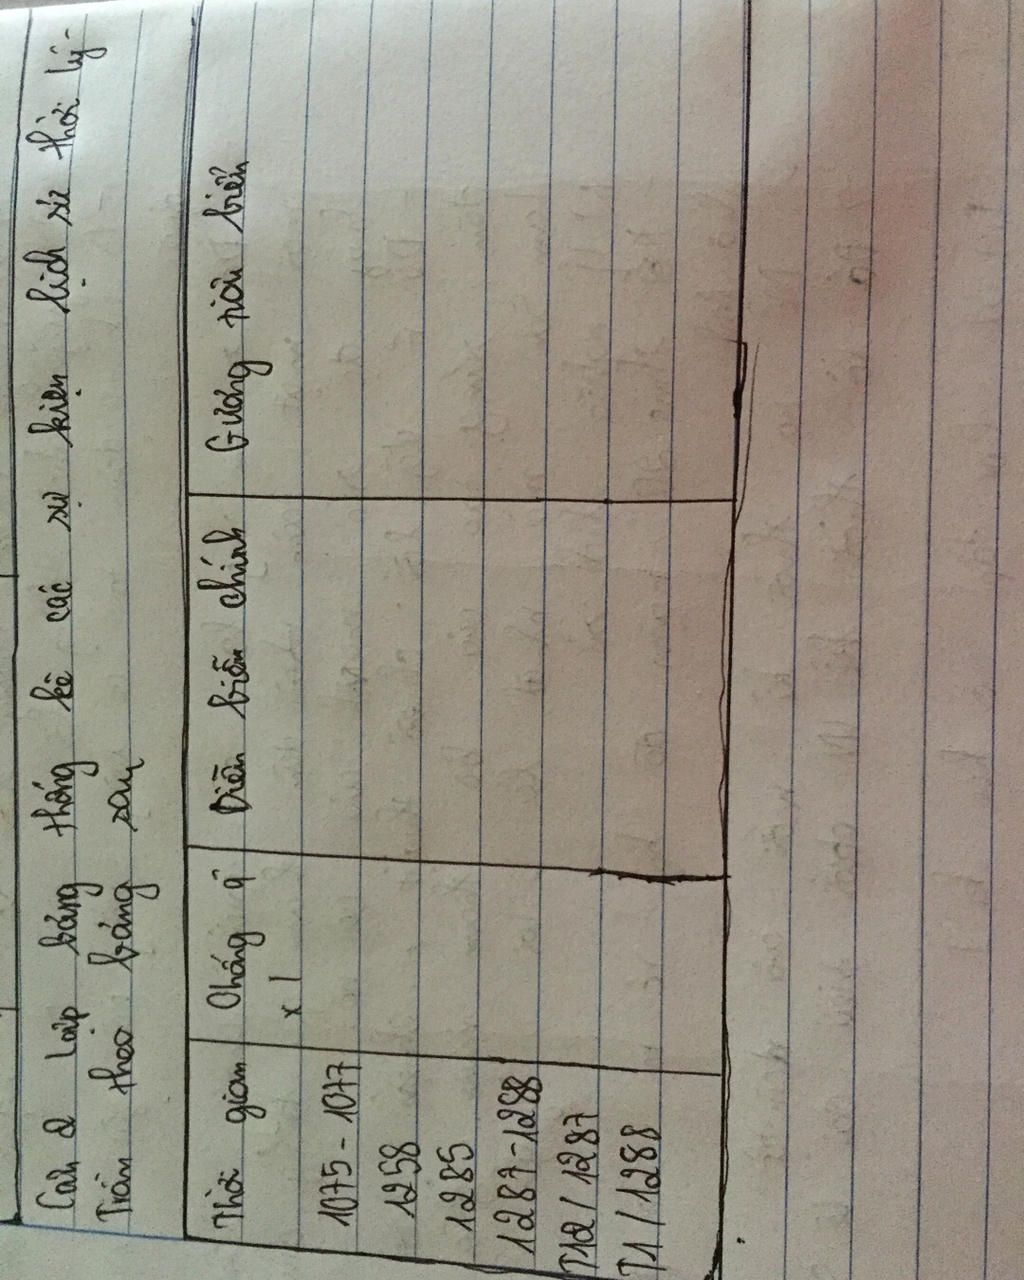 Câu 2 Lập bảng thống kê các sự kiện lịch sử thời Lý -
Trần theo bảng sau
Thời gian Chống q Diễn biến chính Gương tiêu biểu
x l
1075 - 1077
1258
1285
1287 - 1288
T12 / 1287
T1 / 1288